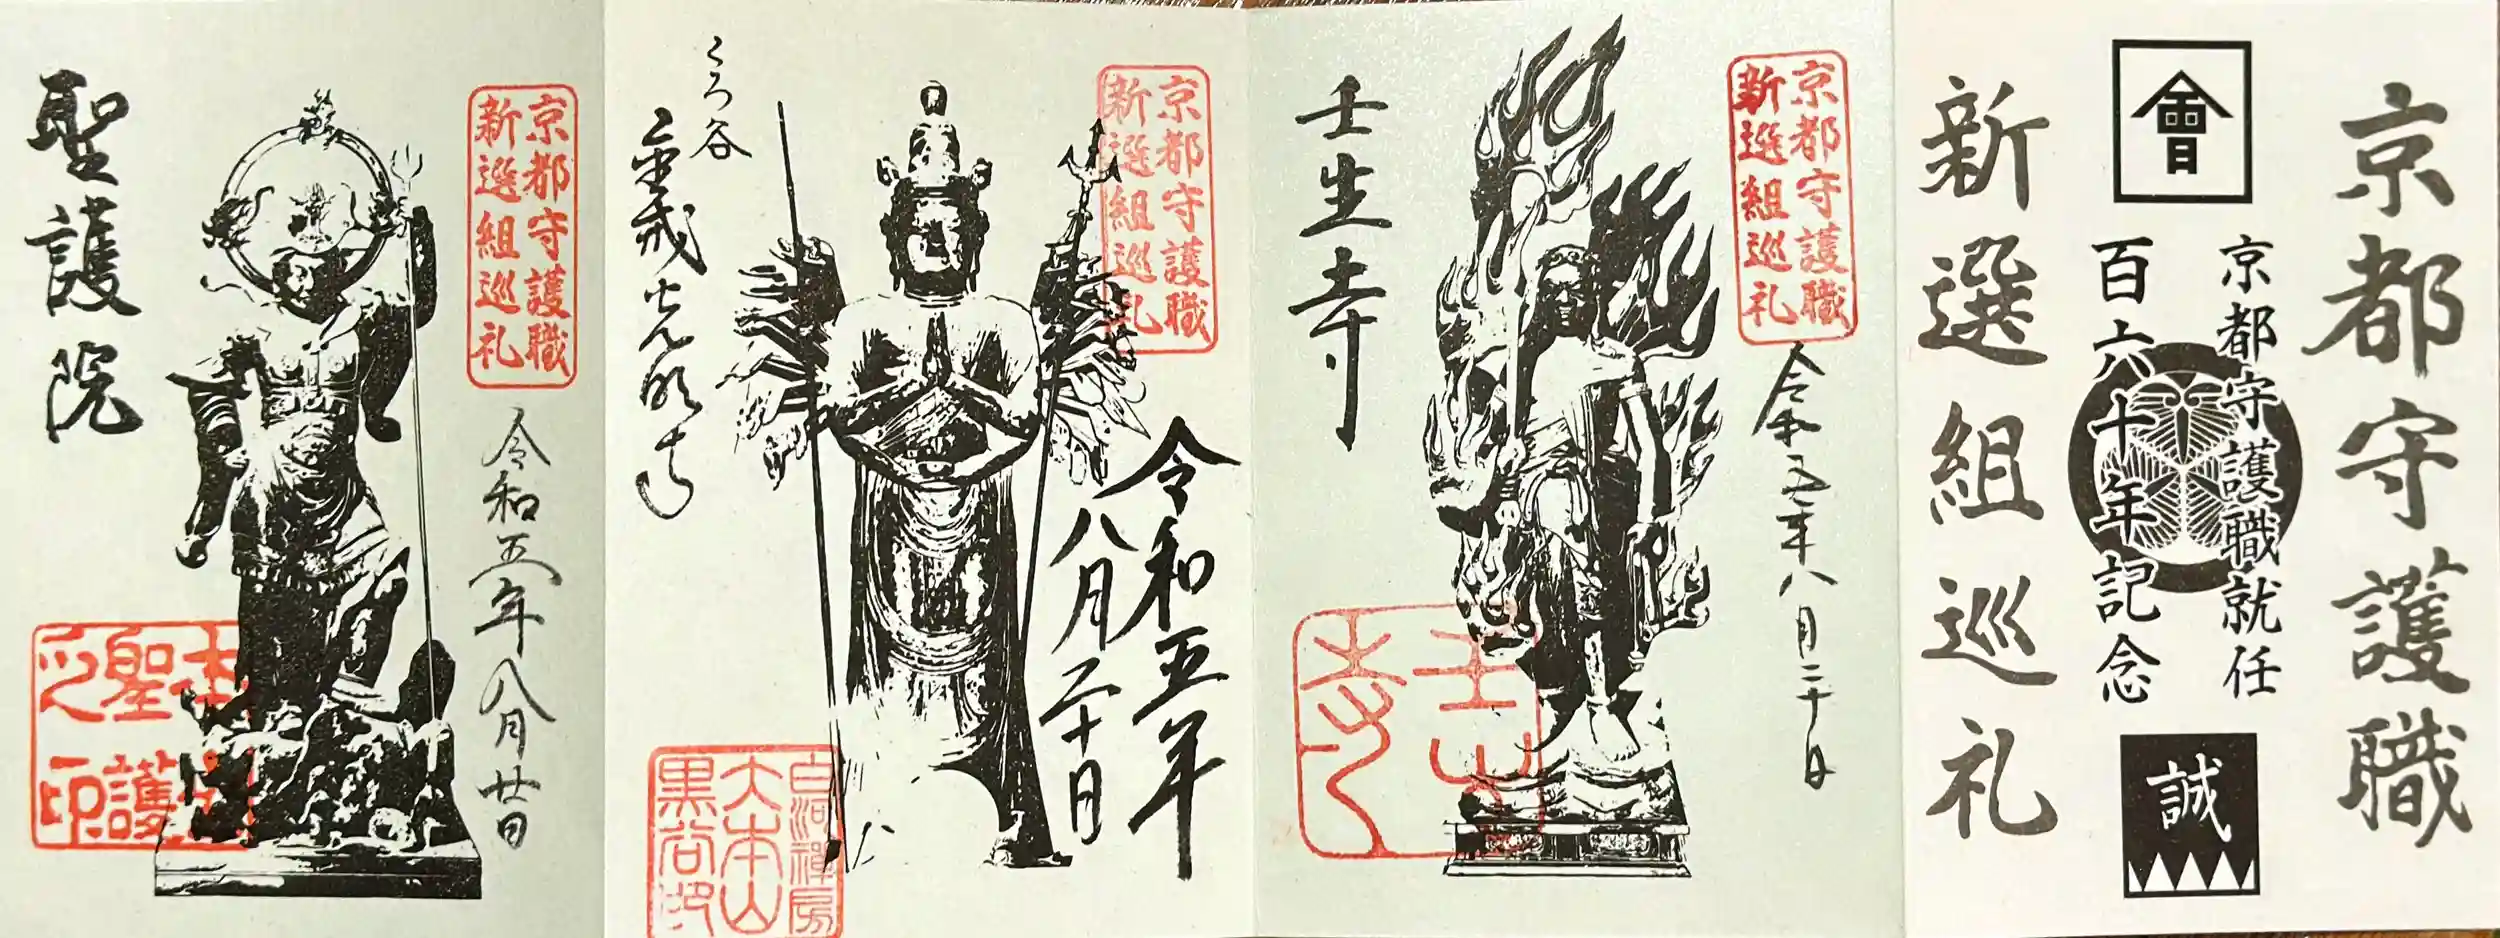 京都守護職
會
京都守護職就任
百六十年記念
誠
新選組巡礼
京都守護職
新選組巡礼
令和五年八月二十日
壬生寺
京都守護職
新選組巡礼
令和五年
八月二十日
くろ谷
金戒光明寺
白河禅房
大本山
黒谷
京都守護職
新選組巡礼
令和五年八月廿日
聖護院
聖護
之印